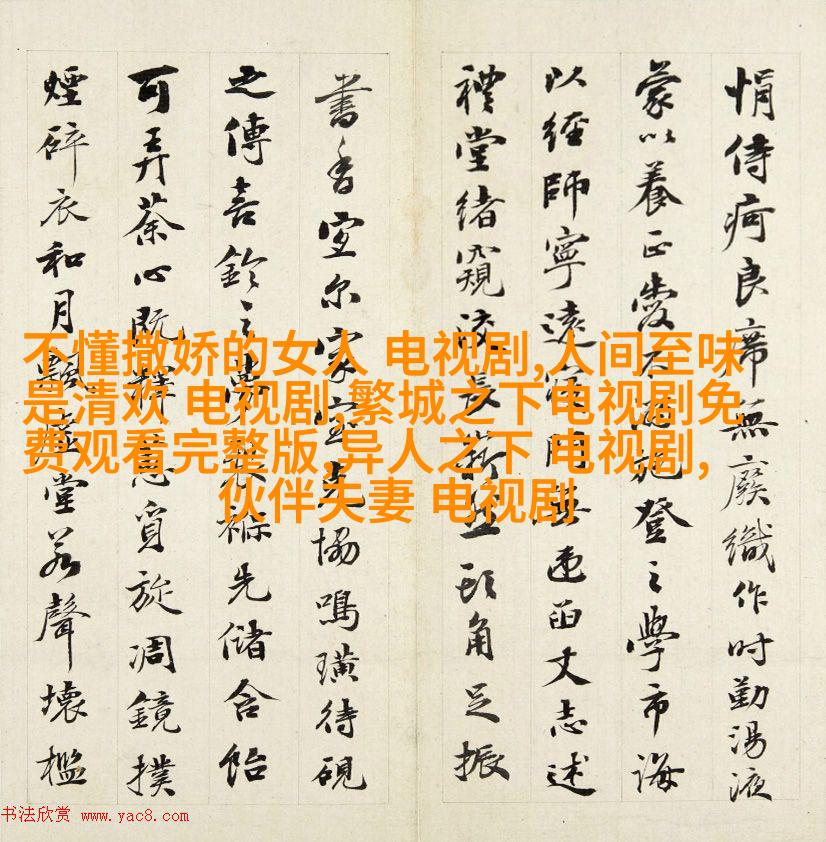 不懂撒娇的女人 电视剧,人间至味
是清欢 电视剧,繁城之下电视剧免
费观看完整版,异人之下 电视剧,
伙伴夫妻 电视剧
悁侍疴良席無廢織作时勤湯液
蒙以養正愛施登之學市誨
以經師寧遠丈志述
禮堂緒窺長嶄然頭角足振
書香室尔家室克協鳴璜待硯
之傳喜鈴之先儲含飴
可弄荼心既釋意覓旋凋鏡撲
煙碎衣和月飄虛堂若聲壞檻
书法欣赏 www.yac8.com